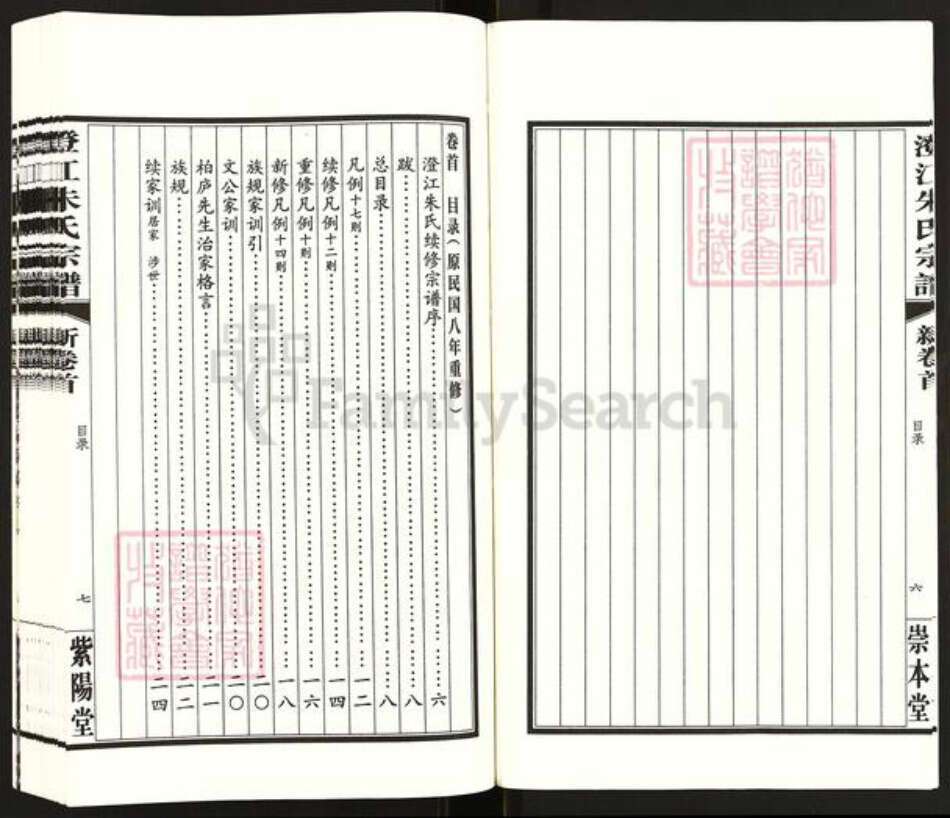 澄江朱氏宗譜
新卷首
目录
六
崇本堂
卷首 目录（原民国八年重修）
澄江朱氏续修宗谱序……六
跋……八
总目录……八
凡例十七则……一二
续修凡例十二则……一四
重修凡例十则……一六
新修凡例十四则……一八
族规家训引……二〇
文公家训……二〇
柏庐先生治家格言……二一
族规……二二
续家训居家 涉世……二四
澄江朱氏宗譜
新卷首
目录
七
紫陽堂
FamilySearch